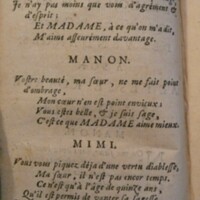 Je n'ay pas moins que vom d'agrément &
d'esprit:
Et MADAME, à ce qu'on m'a dit,
M'aime asseurément davantage.
MANON.
Vostre beauté, ma sœur, ne me fait point
d'ombrage,
Mon cœur n'en est point envieux:
Vous estes belle, & je suis sage,
C'est ce que MADAME aime mieux.
MIMI.
Vous vous piquez déja d'une vertu diablesse,
Ma sœur, il n'est pas encor temps,
Ce n'est qu'à l'âge de quinze ans,
Qu'il est permis de vanter sa sagesse